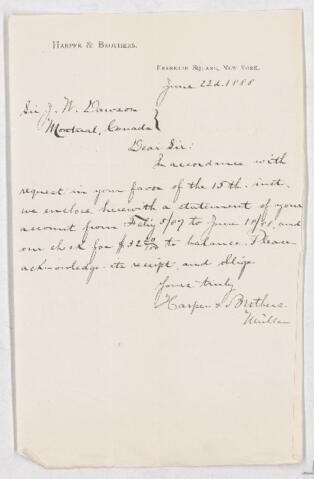 HARPER & BROTHERS.
FRANKLIN SQUARE, NEW YORK.
June 22d. 1888
Sir J. W. Dawson
Montreal, Canada
Dear Sir:
In accordance with
request in your favor of the 15th. inst.
we enclose herewith a statement of your
account from Feb'y to June and
our check for to balance. Please
acknowledge its receipt, and oblige
Yours truly
Harper & Brothers